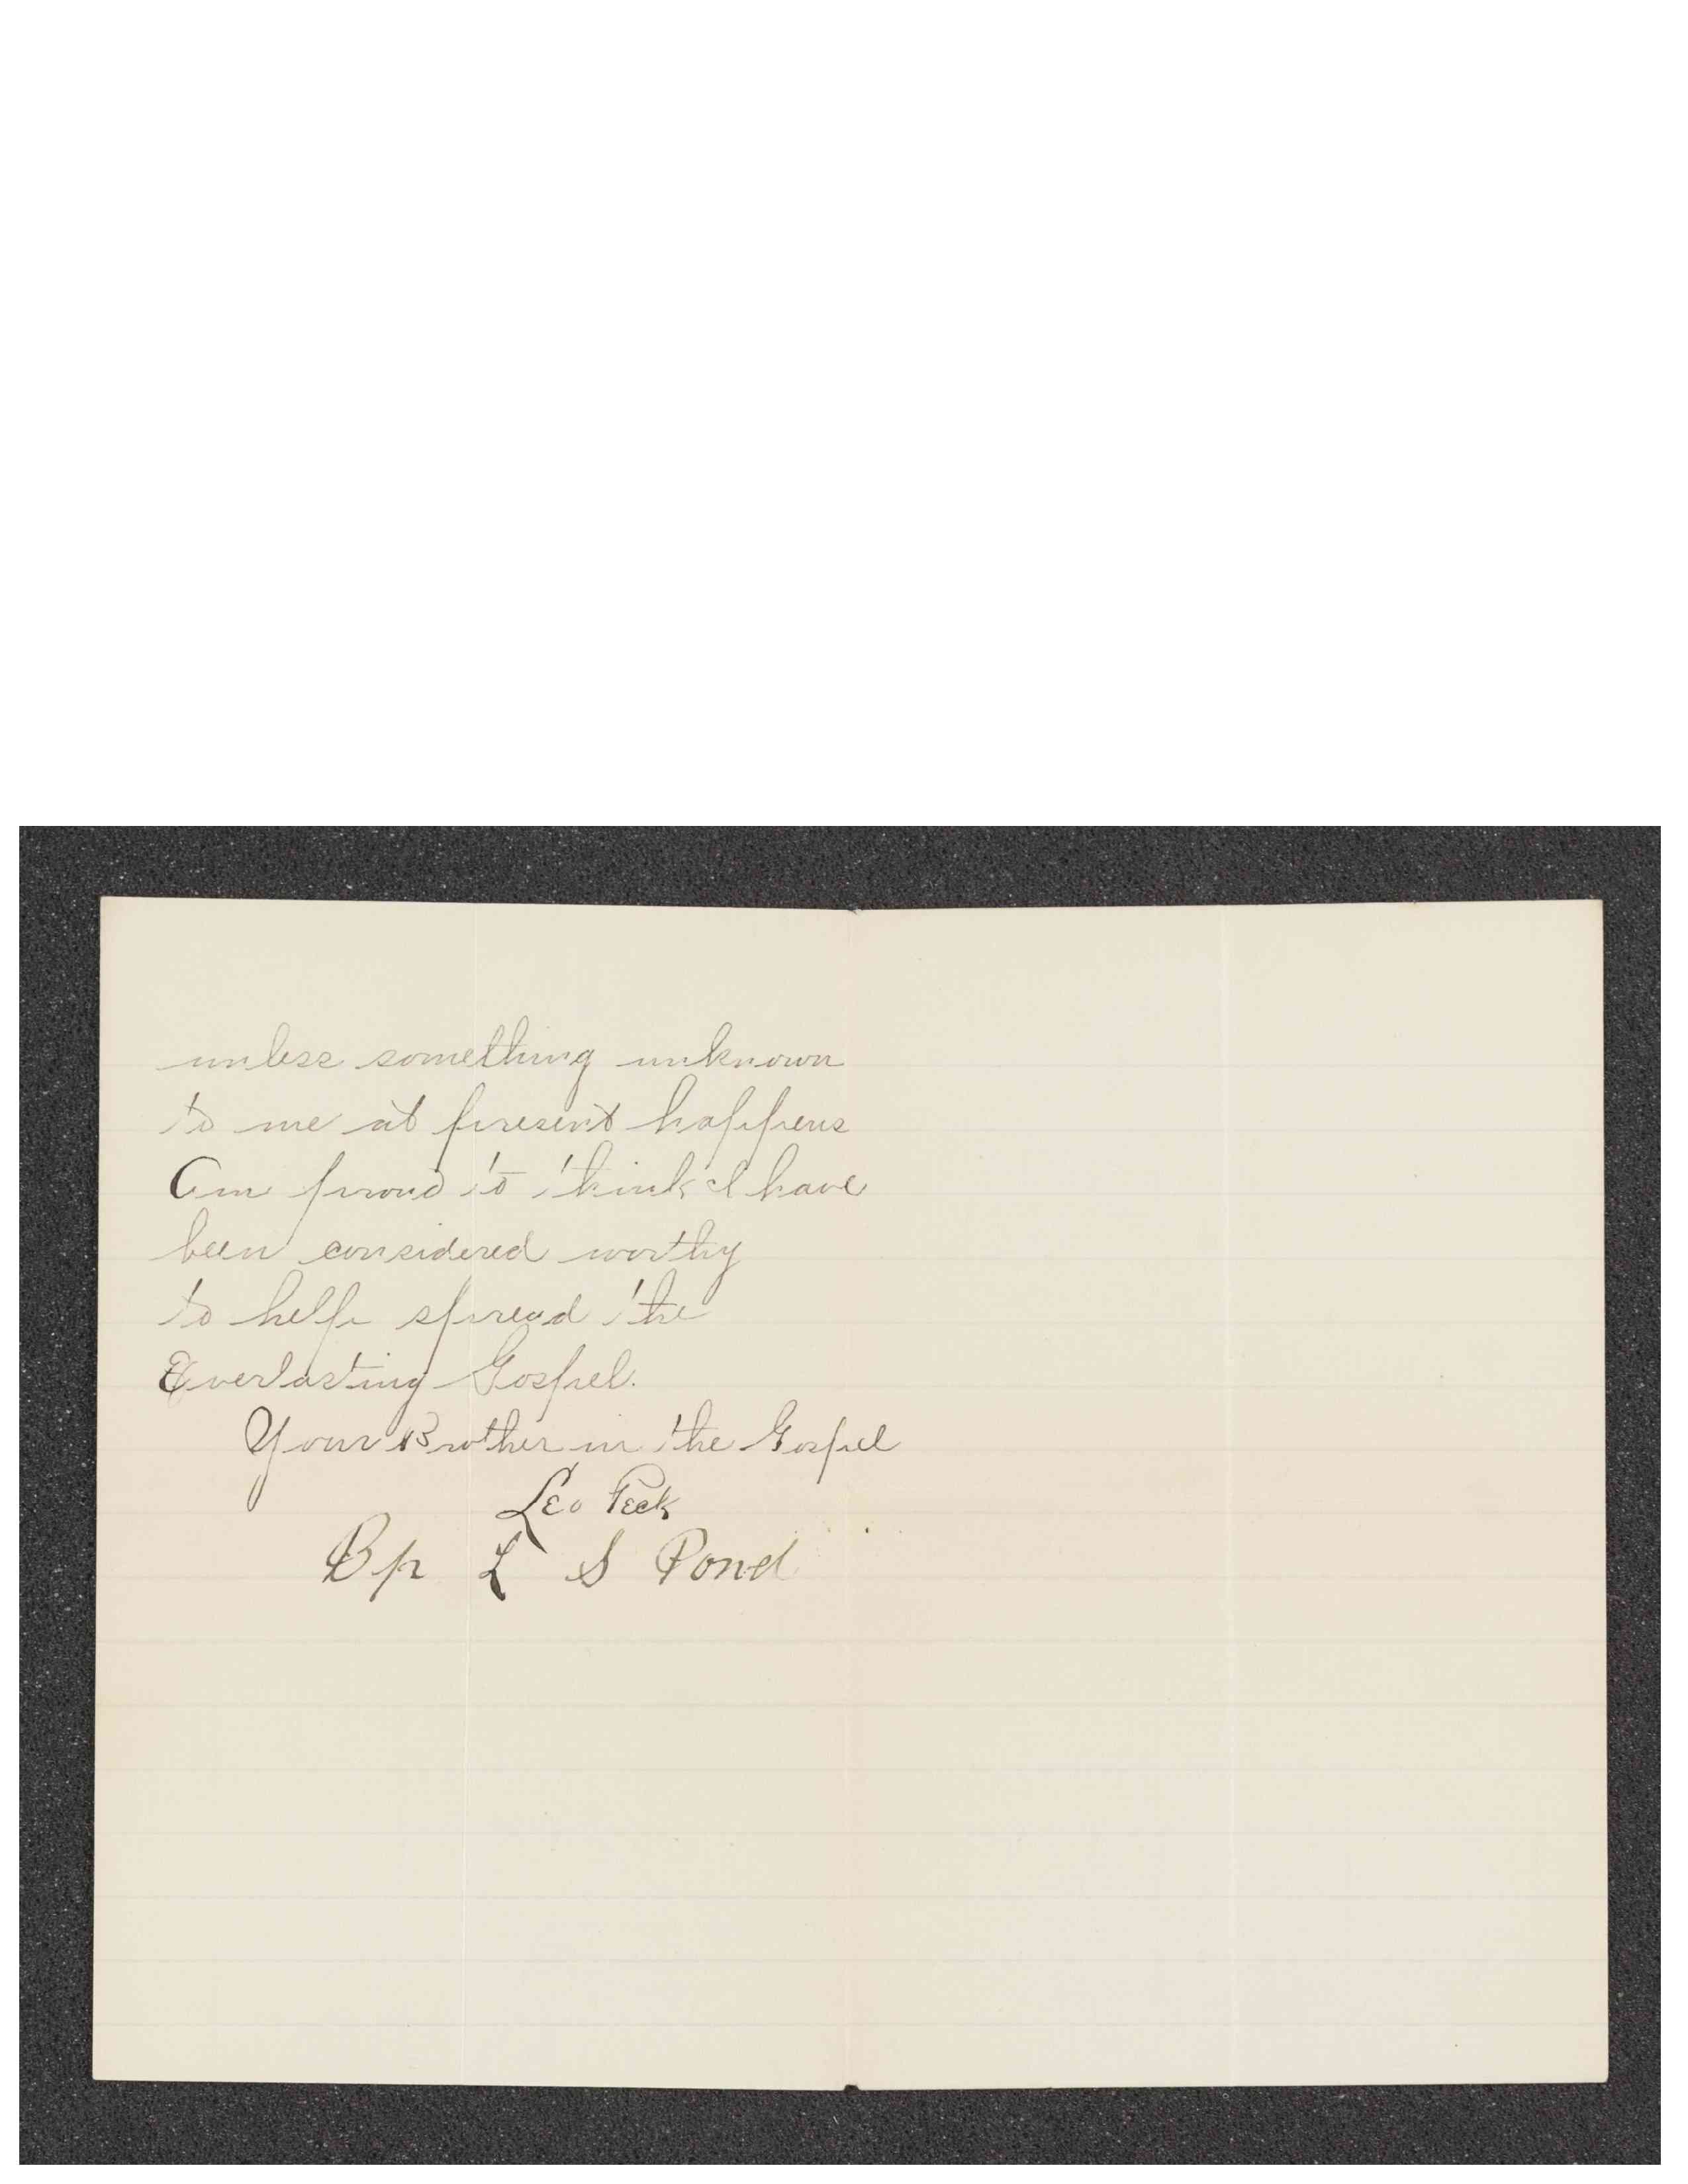 unless something unknown
to me at present happens
Am proud to think I have
been considered worthy
to help spread the
Everlasting Gospel.
Your Brother in the Gospel
Leo Peck
Bp L S Pond